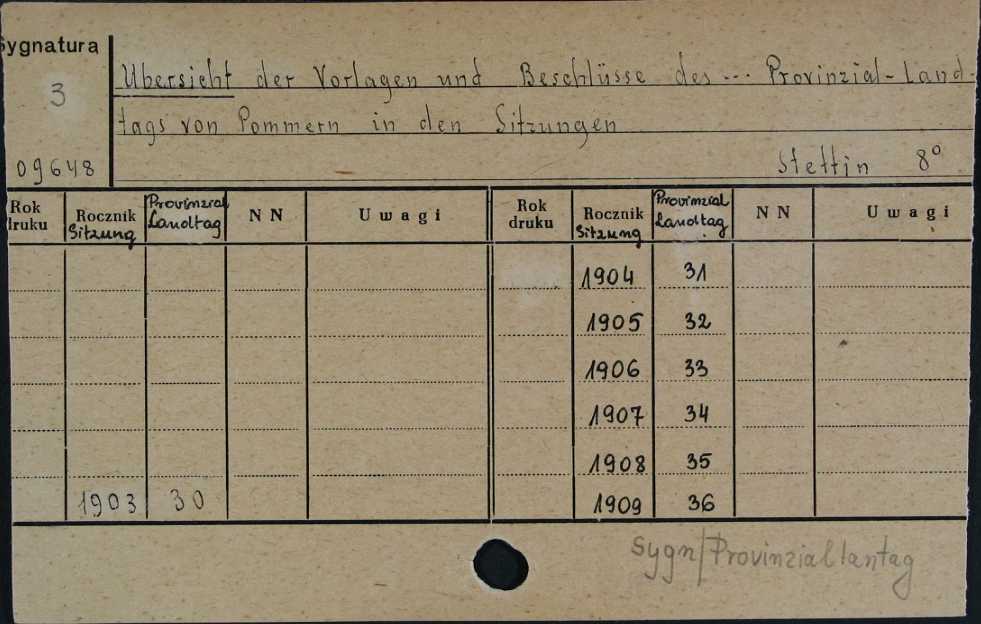 Sygnatura
3
09648
Übersicht der Vorlagen und Beschlüsse des ... Provinzial-Land-
tags von Pommern in den Sitzungen
Stettin 8°
Rok druku Rocznik Sitzung Provinzial Landtag NN Uwagi Rok druku Rocznik Sitzung Provinzial Landtag NN Uwagi
1904 31
1905 32
1906 33
1907 34
1908 35
1903 30 1909 36
Sygn/Provinziallantag